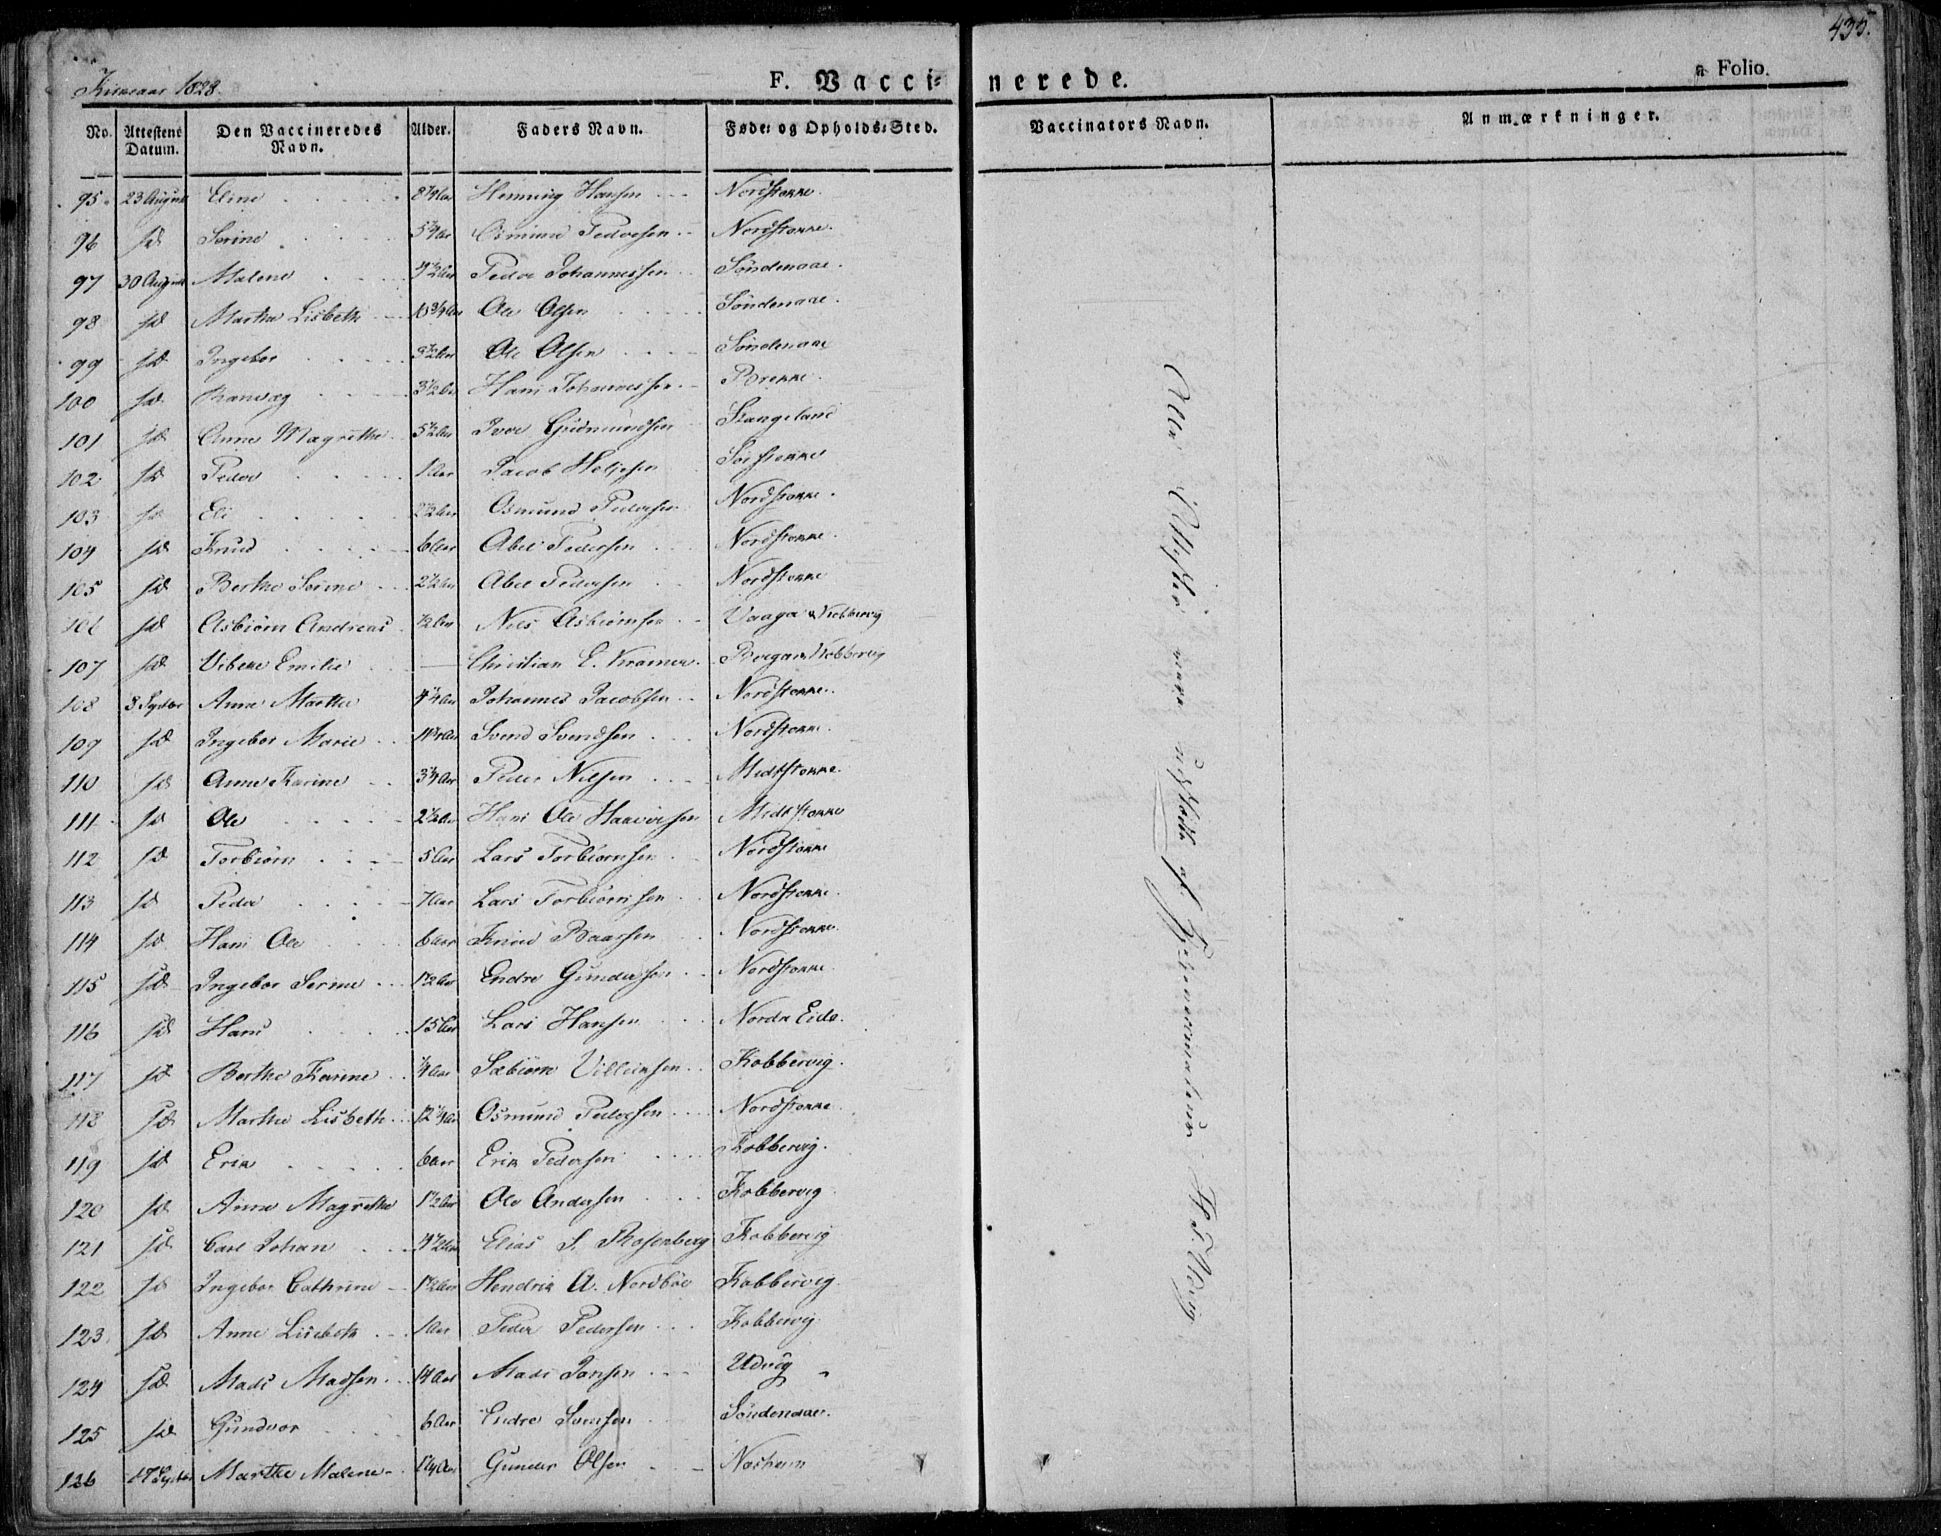 435.
Kirkeaar 1828.
F. Vacci=nerede.
a Folio.
No. Attestens Datum. Den Vaccineredes Navn. Alder. Faders Navn. Føde= og Opholds=Sted. Vaccinators Navn. Anmærkninger.
95. 23 August Eline Henning Hansen Nordstokke.
96 id Serine 5 3/4 Aar Osmund Pedersen Nordstokke.
97 30 August Malene Peder Johannessen Søndenaae.
98 id Marthe Lisbeth 10 3/4 Aar Ole Olsen Søndenaae.
99 id Ingebor 3 1/2 Aar Ole Olsen Søndenaae
100 id Ranveg 3 1/2 Aar Hans Johannessen Brekke.
101 id Anne Magrethe 5 1/2 Aar Iver Gudmundsen Stangeland
102 id Peder 1 Aar Jacob Helgesen Sørstokke
103 id Eli 2 1/2 Aar Osmund Pedersen Nordstokke.
104 id Knud 6 Aar Abel Pedersen Nordstokke.
105 id Berthe Serine 2 1/2 Aar Abel Pedersen Nordstokke
106 id Asbiørn Andreas 1/2 Aar Nils Asbiørnsen Vaaga v Kobbervig
107 id Vibeke Emilie — Christian E. Kramer. Kobbervig
108 3 Septbr Anne Marthe 4 1/4 Aar Johannes Jacobsen Nordstokke.
109 id Ingebor Marie Svend Svendsen Nordstokke.
110 id Anne Karine 3 3/4 Aar Peder Nilsen Midtstokke.
111 id Ole 2 1/2 Aar Hans Ole Haaversen Midtstokke
112 id Torbiørn 5 Aar Lars Torbiørnsen Nordstokke
113 id Peder 7 Aar Lars Torbiørnsen Nordstokke.
114 id Hans Ole 6 Aar Knud Baarsen Nordstokke.
115 id Ingebor Serine 1 1/2 Aar Endre Gundersen Nordstokke.
116 id Hans 15 Aar Lars Hansen Nordre Eide.
117 id Berthe Karine 1/4 Aar Sæbiørn Villumsen Kobbervig.
118 id Marthe Lisbeth 12 1/4 Aar Osmund Pedersen Nordstokke
119 id Erik 6 Aar Erik Pedersen Kobbervig.
120 id Anne Magrethe 1 1/2 Aar Ole Andersen Kobbervig
121 id Carl Johan Elias S. Rosenberg Kobbervig
122 id Ingebor Cathrine 1 1/2 Aar Hendrik A. Nordbøe Kobbervig.
123 id Anne Lisebeth 1 Aar Peder Pedersen Kobbervig
124 id Mads Madsen 14 Aar Mads Jansen Udvig
125 id Gundvor 6 Aar Endre Svensen Søndenaae.
126 17 Septbr Marthe Malene Gunder Olsen Norheim
Alle Attester ere udstædte af